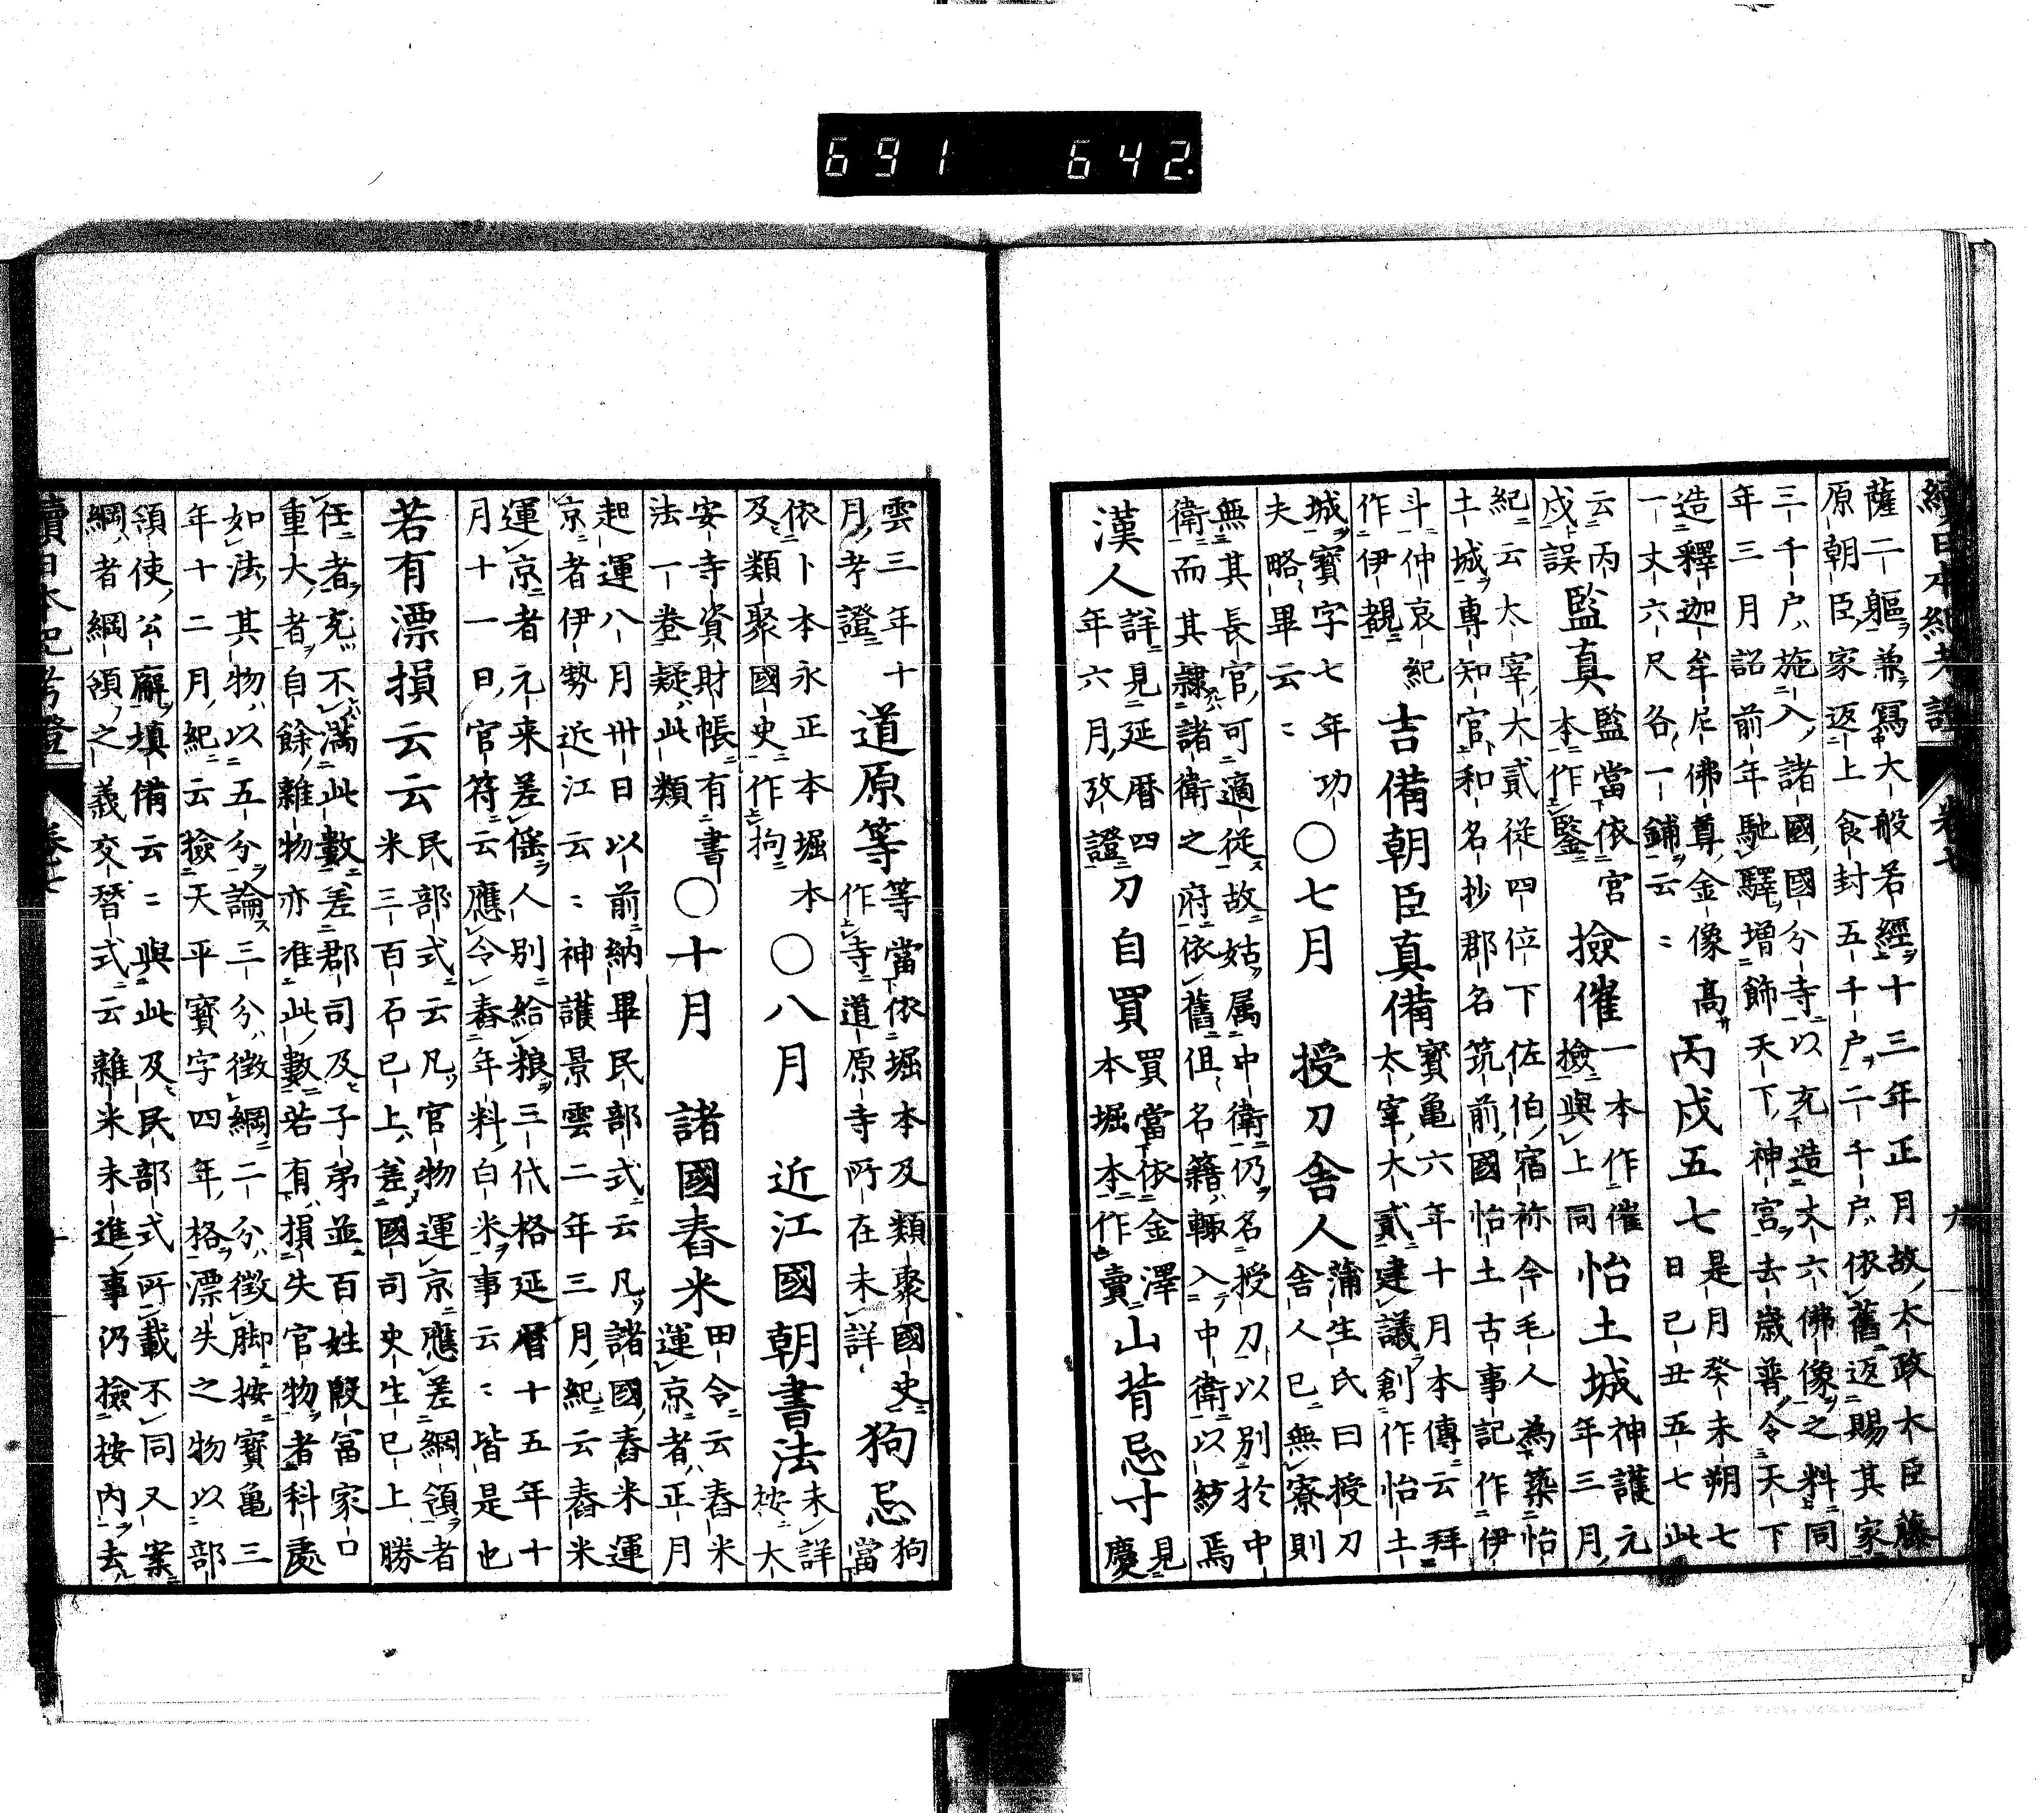 691 642.
續日本紀考證 卷七 九
薩二軀兼寫大般若經十三年正月故太政大臣藤
原朝臣家返上食封五千戶二千戶依舊返賜其家
三千戶施入諸國國分寺以充造丈六佛像之料同
年三月詔前年馳驛增飾天下神宮去歲普令天下
造釋迦牟尼佛尊金像高
一丈六尺各一鋪云〻
丙戌五七
是月癸未朔七
日己丑五七此
云丙
戌誤
監真
監當依官
本作鑒
撿催
一本作催
撿與上同
怡土城
神護元
年三月
紀云太宰大貳從四位下佐伯宿祢今毛人為築怡
土城專知官和名抄郡名筑前國怡土古事記作伊
斗仲哀紀
作伊覩
吉備朝臣真備
寶亀六年十月本傳云拜
太宰大貳建議創作怡土
城寶字七年功
夫略畢云〻
〇七月
授刀舍人
蒲生氏曰授刀
舍人已無寮則
無其長官可適從故姑属中衛仍名授刀以別於中
衛而其隷諸衛之府依舊但名籍輙入中衛以紛焉
漢人
詳見延曆四
年六月攷證
刀自買
買當依金澤
本堀本作賣
山背忌寸
見
慶
雲三年十
月考證
道原等
等當依堀本及類聚國史
作寺道原寺所在未詳
狗忌
狗
當
依卜本永正本堀本
及類聚國史作拘
〇八月
近江國朝書法
未詳
按大
安寺資財帳有書
法一卷疑此類
〇十月
諸國舂米
田令云舂米
運京者正月
起運八月卅日以前納畢民部式云凡諸國舂米運
京者伊勢近江云〻神護景雲二年三月紀云舂米
運京者元来差徭人別給粮三代格延曆十五年十
月十一日官符云應令舂年料白米事云〻皆是也
若有漂損云云
民部式云凡官物運京應差綱領者
米三百石已上差國司史生已上勝
任者充不滿此數差郡司及子弟並百姓殷富家口
重大者自餘雜物亦准此數若有損失官物者科處
如法其物以五分論三分徵綱二分徵脚按寶亀三
年十二月紀云撿天平寶字四年格漂失之物以部
領使公廨填備云〻與此及民部式所載不同又案
綱者綱領之義交替式云雜米未進事仍撿按內去
續日本紀考證 卷七 十